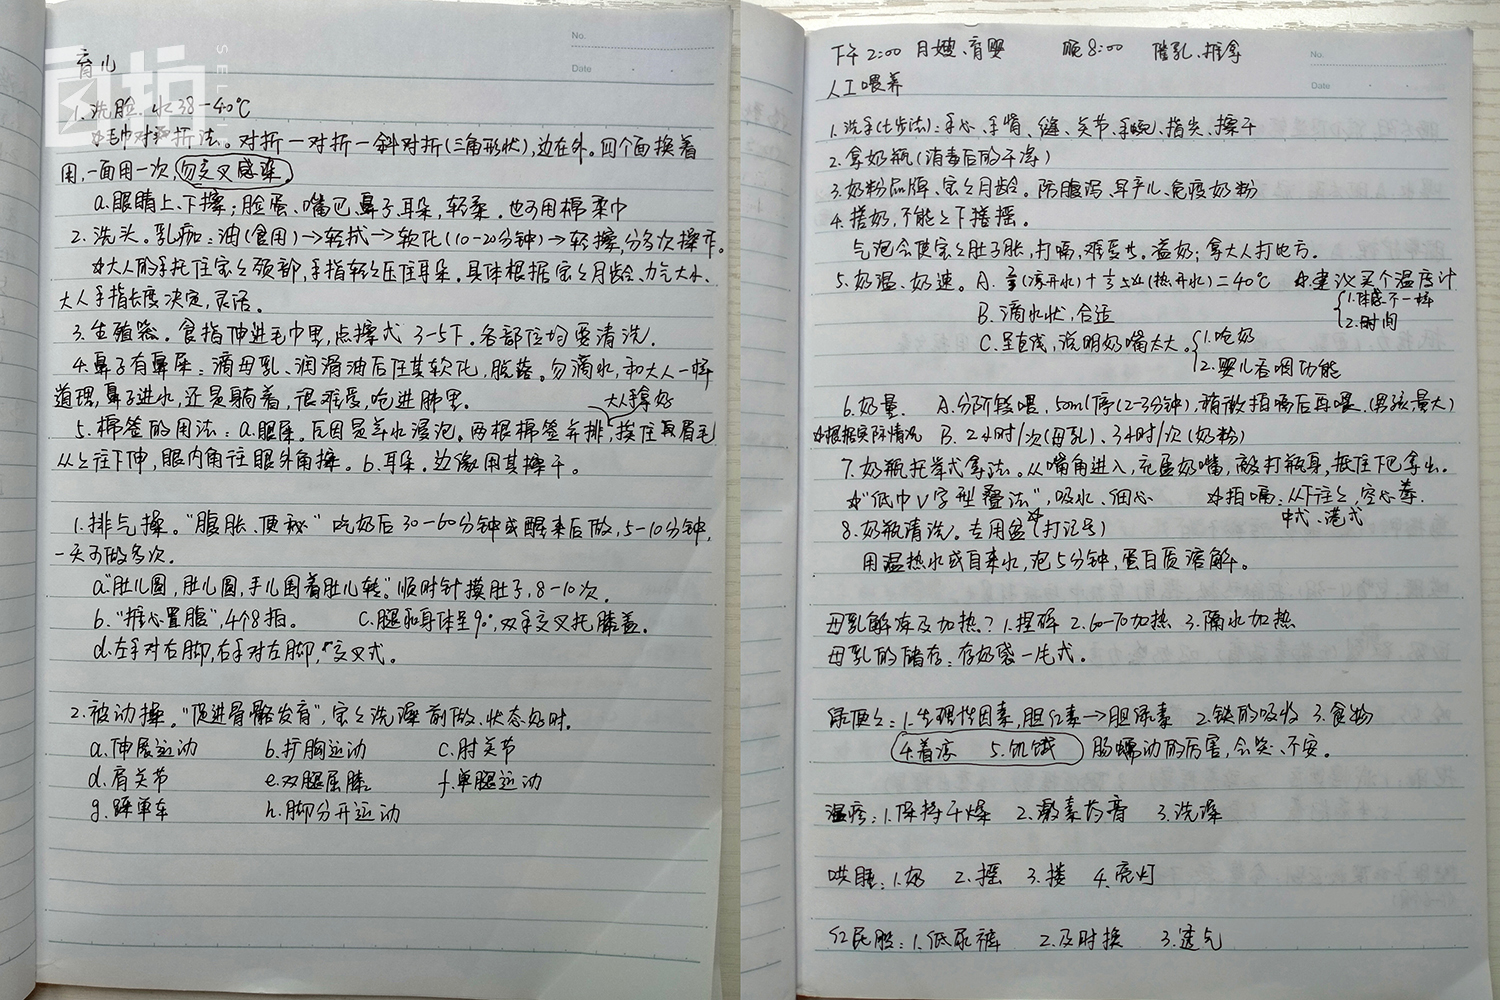 图拍
SELFIE
No.
Date
育儿
1.洗脸.水38-40℃
☆毛巾对折法。对折一对折一斜对折(三角形状),边在外。四个面换着
用,一面用一次,勿交叉感染。
a.眼睛上、下擦;脸蛋、嘴巴、鼻子、耳朵,轻柔。也可用棉柔巾
2.洗头。乳痂:油(食用)→轻拭→软化(10-20分钟)→轻擦,分多次操作。
☆大人的手托住宝宝颈部,手指轻轻压住耳朵。具体根据宝宝月龄、力气大小、
大人手指长度决定,灵活。
3.生殖器。食指伸进毛巾里,点擦式3-5下。各部位均要清洗。
4.鼻子有鼻屎:滴母乳、润滑油后任其软化,脱落。勿滴水,和大人一样
道理,鼻子进水,还是躺着,很难受,呛进肺里。
大人手拿好
5.棉签的用法:a.眼屎。因是羊水浸泡。两根棉签并排,挨住眉毛
从上往下伸,眼内角往眼外角擦。b.耳朵。边缘用其擦干。
1.排气操。“腹胀、便秘”吃奶后30-60分钟或醒来后做,5-10分钟,
一天可做多次。
a.“肚儿圆,肚儿圆,手儿围着肚儿转。”顺时针摸肚子,8-10次.
b.“推心置腹”,4个8拍。 c.腿和身体呈90°,双手交叉托膝盖。
d.左手对右脚,右手对左脚,交叉式。
2.被动操。“促进骨骼发育”,宝宝洗澡前做、状态好时。
a.伸展运动 b.扩胸运动 c.肘关节
d.肩关节 e.双腿屈膝 f.单腿运动
g.踩单车 h.脚分开运动
No.
Date
下午2:00 月嫂、育婴 晚8:00 催乳、推拿
人工喂养
1.洗手(七步法):手心、手背、缝、关节、手腕、指尖、擦干
2.拿奶瓶(消毒后的干净)
3.奶粉品牌、宝宝月龄。防腹泻、早产儿、免疫奶粉
4.搓奶,不能上下摇摇。
气泡会使宝宝肚子胀,打嗝,难受。溢奶;拿大人打比方。
5.奶温、奶速。A.(凉开水)+(热开水)=40℃ ☆建议买个温度计
1.体感不一样
2.时间
B.滴水状,合适
C.呈直线,说明奶嘴太大。
1.呛奶
2.婴儿吞咽功能
6.奶量. A.分阶段喂,50ml停(2-3分钟),稍微拍嗝后再喂.(男孩量大)
☆根据实际情况 B.2小时/次(母乳)、3小时/次(奶粉)
7.奶瓶托举式拿法。从嘴角进入,充盈奶嘴,敲打瓶身,抵住下巴拿出。
☆“低巾V字型叠法”,吸水、细心 ☆拍嗝:从下往上,空心拳.
中式、港式
8.奶瓶清洗。专用盆☆(打记号)
用温热水或自来水,泡5分钟,蛋白质溶解。
母乳解冻及加热?1.捏碎 2.60-70加热 3.隔水加热
母乳的储存:存奶袋一片式.
绿便便:1.生理性因素,胆红素→胆绿素 2.铁的吸收 3.食物
4.着凉 5.饥饿 肠蠕动的厉害,会哭、不安。
湿疹:1.保持干燥 2.激素药膏 3.洗澡
哄睡:1.奶 2.摇 3.搂 4.亮灯
红屁股:1.低尿裤 2.及时换 3.透气